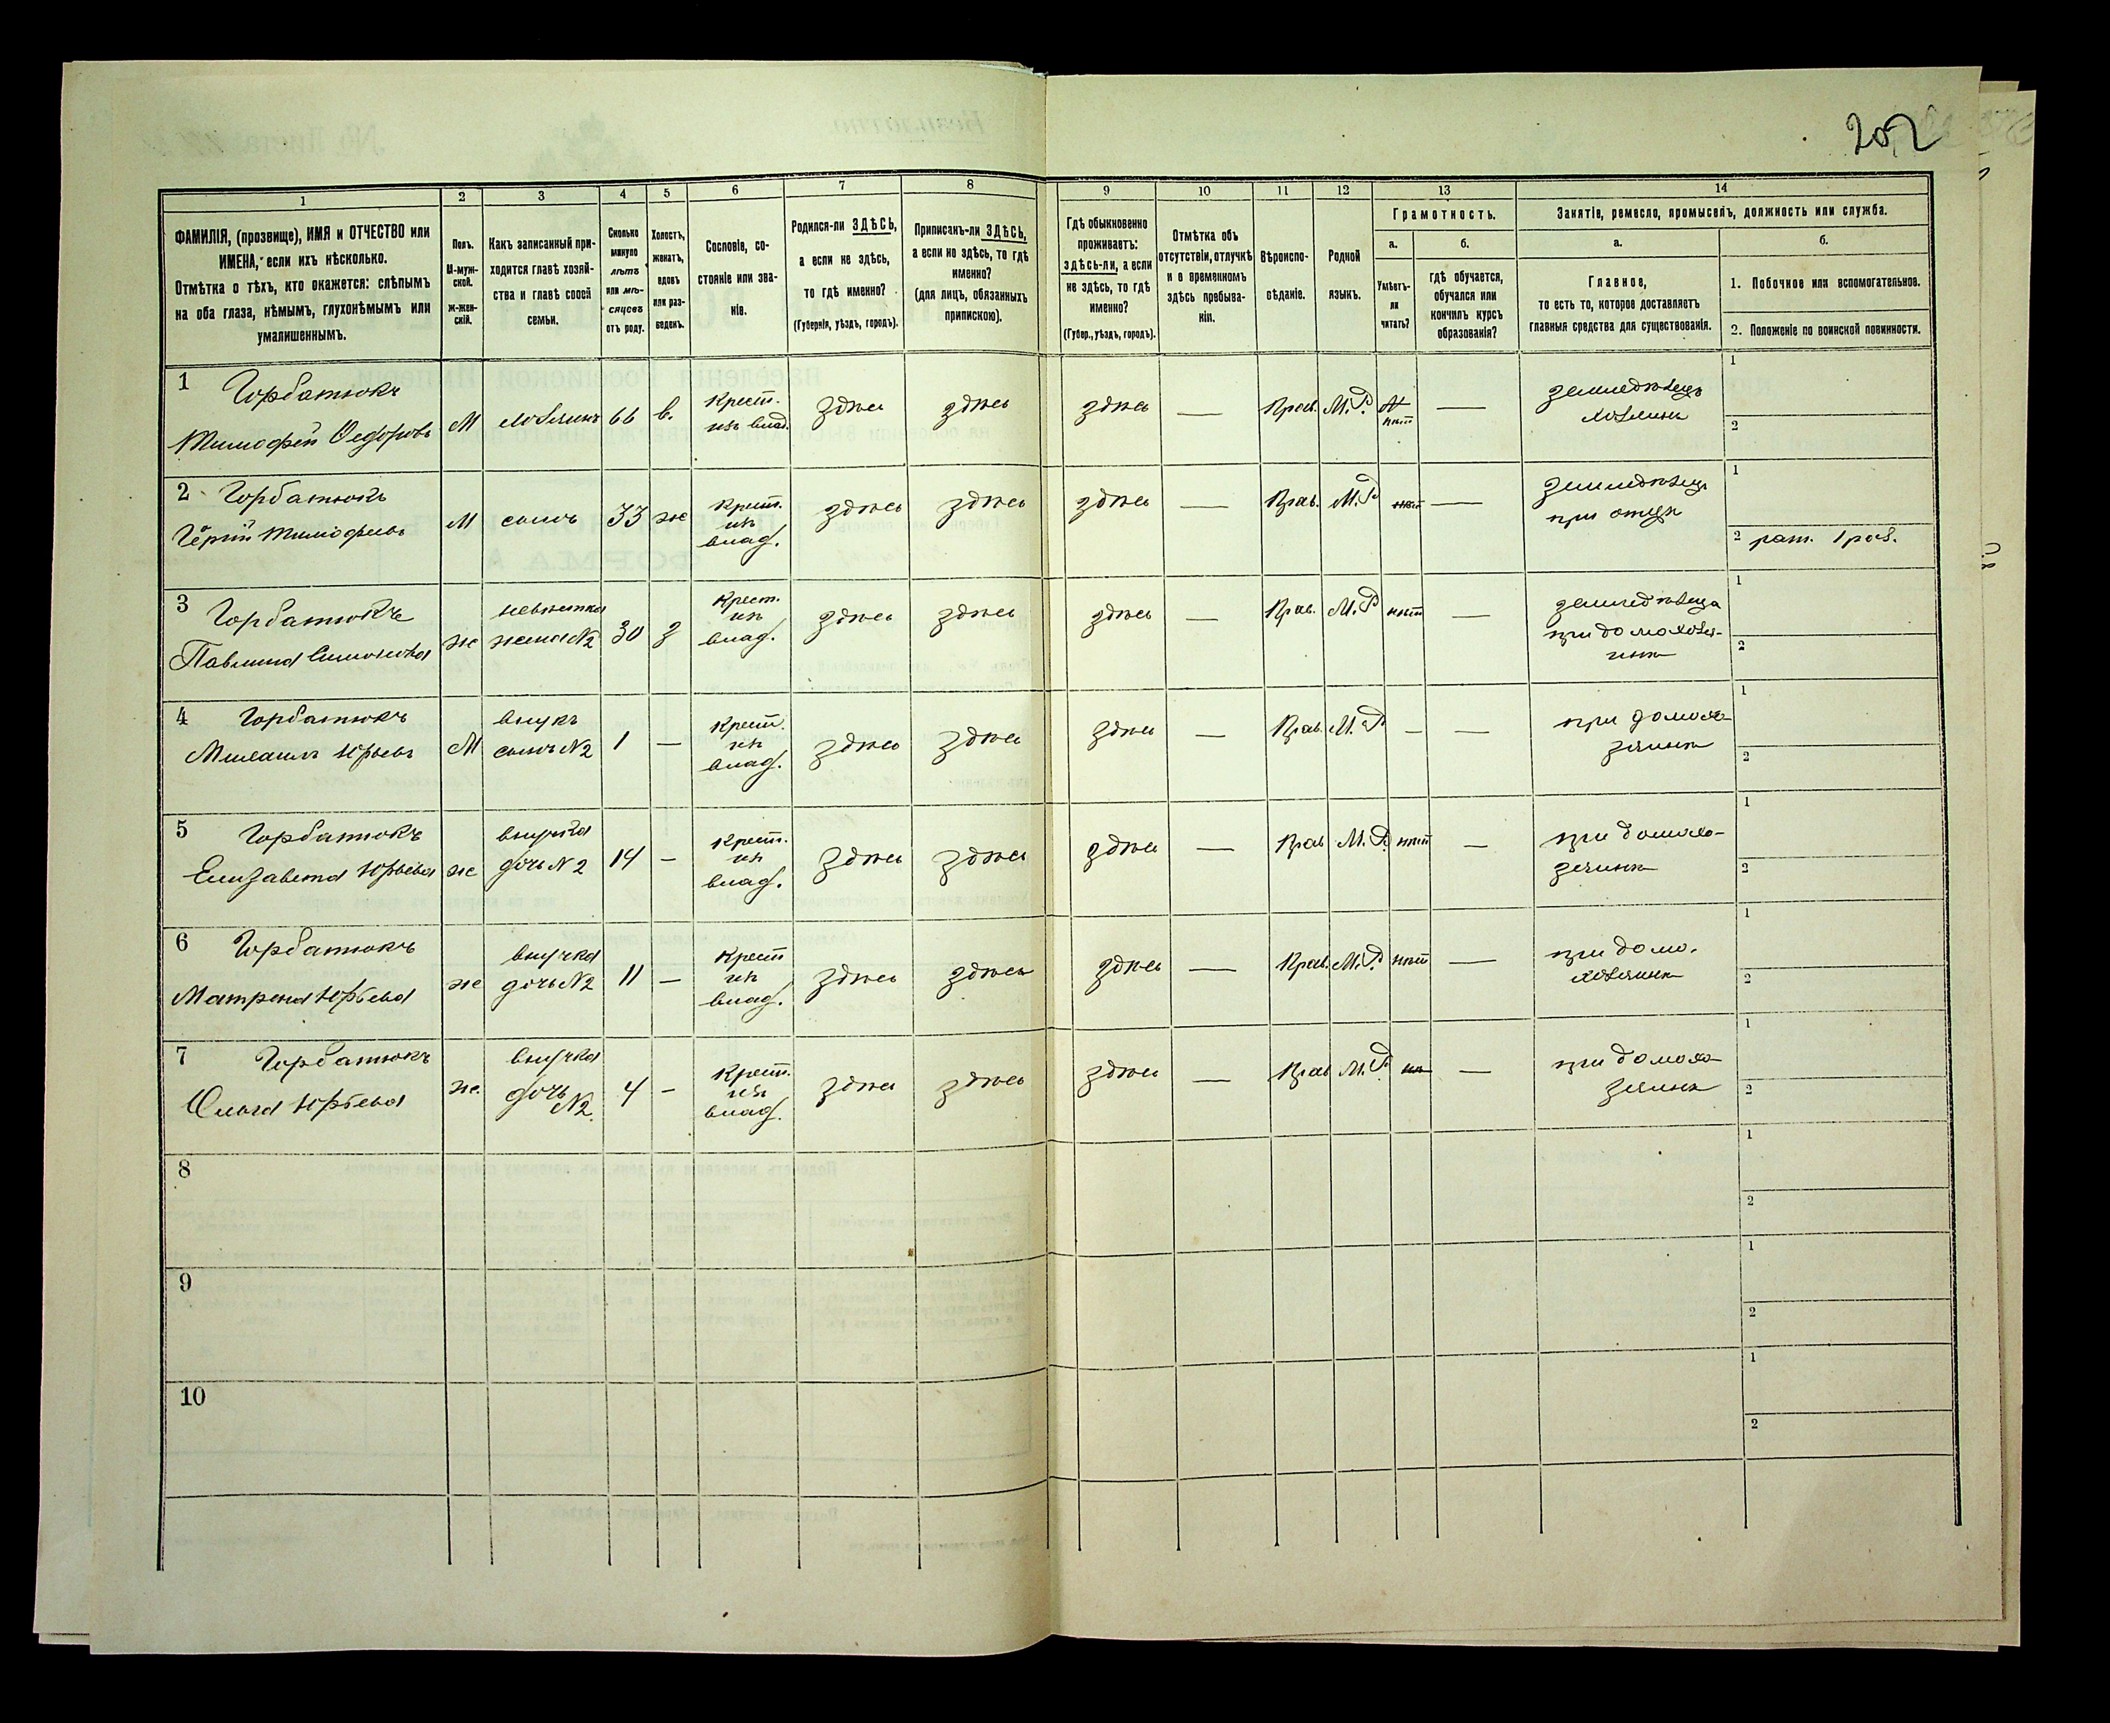 202
1 2 3 4 5 6 7 8 9 10 11 12 13 14
ФАМИЛІЯ, (прозвище), ИМЯ и ОТЧЕСТВО или
ИМЕНА, если ихъ нѣсколько.
Отмѣтка о тѣхъ, кто окажется: слѣпымъ
на оба глаза, нѣмымъ, глухонѣмымъ или
умалишеннымъ.
Полъ.
М-муж-
ской.
ж-жен-
скій.
Какъ записанный при-
ходится главѣ хозяй-
ства и главѣ своей
семьи.
Сколько
минуло
лѣтъ
или мѣ-
сяцевъ
отъ роду.
Холостъ,
женатъ,
вдовъ
или раз-
веденъ.
Сословіе, со-
стояніе или зва-
ніе.
Родился-ли ЗДѢСЬ,
а если не здѣсь,
то гдѣ именно?
(Губернія, уѣздъ, городъ).
Приписанъ-ли ЗДѢСЬ,
а если не здѣсь, то гдѣ
именно?
(для лицъ, обязанныхъ
припискою).
Гдѣ обыкновенно
проживаетъ:
здѣсь-ли, а если
не здѣсь, то гдѣ
именно?
(Губер., уѣздъ, городъ).
Отмѣтка объ
отсутствіи, отлучкѣ
и о временномъ
здѣсь пребыва-
ніи.
Вѣроиспо-
вѣданіе.
Родной
языкъ.
Грамотность.
а.
Умѣетъ-
ли
читать?
б.
гдѣ обучается,
обучался или
кончилъ курсъ
образованія?
Занятіе, ремесло, промыселъ, должность или служба.
а.
Главное,
то есть то, которое доставляетъ
главныя средства для существованія.
б.
1. Побочное или вспомогательное.
2. Положеніе по воинской повинности.
1 Горбатюкъ
Тимофей Федоровъ
М
хозяинъ
66
в.
Крест.
изъ влад.
здѣсь
здѣсь
здѣсь
—
Прав.
М.Р.
нѣт
—
земледѣлецъ
хозяинъ
1
2
2 Горбатюкъ
Тимофеевъ
М
сынъ
33
ж
Крест.
из
влад.
здѣсь
здѣсь
здѣсь
—
Прав.
М.Р
нѣт
—
земледѣлец
при отцѣ
1
2 рат. 1 раз.
3 Горбатюкъ
Павлина Симонова
ж
невѣстка
жена №2
30
з
Крест.
из
влад.
здѣсь
здѣсь
здѣсь
—
Прав.
М.Р
нѣт
—
при домохозя-
инѣ
1
2
4 Горбатюкъ
Михаилъ Юрьевъ
М
внукъ
сынъ №2
1
—
Крест.
из
влад.
здѣсь
здѣсь
здѣсь
—
Прав.
М.Р
—
—
при домохо-
зяинѣ
1
2
5 Горбатюкъ
Елизавета Юрьева
ж
внучка
дочь №2
14
—
Крест.
из
влад.
здѣсь
здѣсь
здѣсь
—
Прав
М.Р.
нѣт
—
при домохо-
зяинѣ
1
2
6 Горбатюкъ
Матрена Юрьева
ж
внучка
дочь №2
11
—
Крест
из
влад.
здѣсь
здѣсь
здѣсь
—
Прав.
М.Р.
нѣт
—
при домо-
хозяинѣ
1
2
7 Горбатюкъ
Ольга Юрьева
ж.
внучка
дочь
№2.
4
—
Крест.
из
влад.
здѣсь
здѣсь
здѣсь
—
Прав
М.Р.
—
при домохо-
зяинѣ
1
2
8
1
2
9
1
2
10
1
2